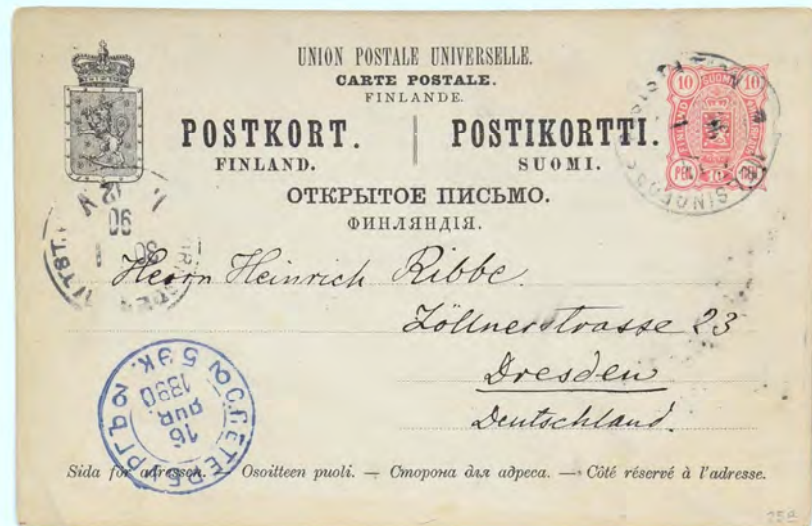 UNION POSTALE UNIVERSELLE.
CARTE POSTALE.
FINLANDE.
POSTKORT. POSTIKORTTI.
FINLAND. SUOMI.
ОТКРЫТОЕ ПИСЬМО.
ФИНЛЯНДІЯ.
10 SUOMI 10
PEN. PEN.
12 N
90
30 1
Herrn Heinrich Ribbe.
Zöllnerstrasse 23
Dresden
Deutschland.
С.ПЕТЕРБУРГЪ 2
5 ЭК. 2
16
ЯНВ.
1890
Sida för adressen. — Osoitteen puoli. — Сторона для адреса. — Côté réservé à l'adresse.